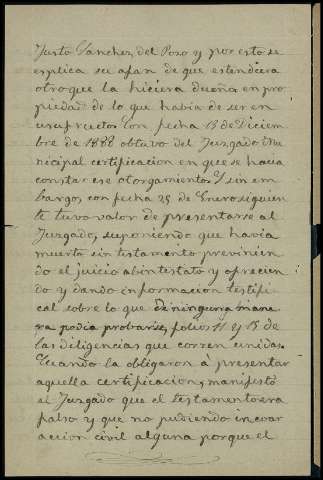 Justo Sanchez del Pozo y por esto se
esplica su afan de que estendiera
otro que la hiciera dueña en pro
piedad de lo que habia de ser en
usufructo. Con fecha 13 de Diciem
bre de 1888 obtuvo del Juzgado Mu
nicipal certificacion en que se hacia
constar ese otorgamiento. Y sin em
bargo, con fecha 25 de Enero siguien
te tuvo valor de presentarse al
Juzgado, suponiendo que havia
muerto sin testamento previnien
do el juicio abintestato y ofrecien
do y dando informacion testifi
cal sobre lo que de ninguna mane
ra podia probarse, folios 11 y 13 de
las diligencias que corren unidas.
Cuando la obligaron á presentar
aquella certificacion, manifestó
el Juzgado que el testamento era
falso y que no pudiendo incoar
accion civil alguna porque el